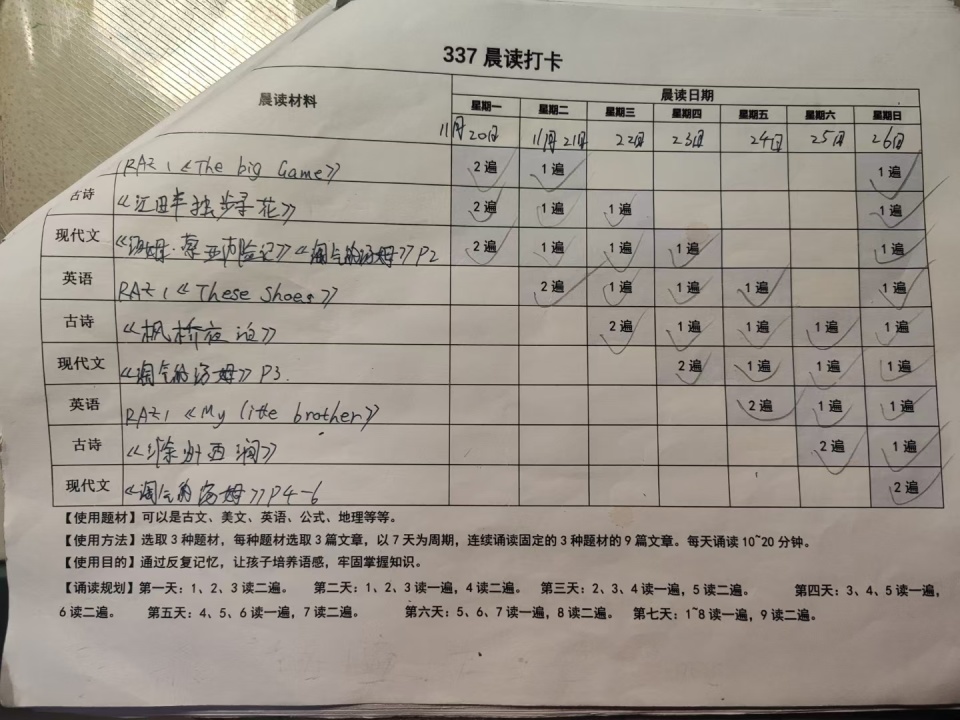 337 晨读打卡
晨读材料 晨读日期
星期一 星期二 星期三 星期四 星期五 星期六 星期日
11月20日 11月21日 22日 23日 24日 25日 26日
RAZ1《The big Game》 2遍 1遍 1遍
古诗 《江畔独步寻花》 2遍 1遍 1遍 1遍
现代文 《汤姆·索亚历险记》《淘气的汤姆》P2 2遍 1遍 1遍 1遍 1遍
英语 RAZ1《These Shoes》 2遍 1遍 1遍 1遍 1遍
古诗 《枫桥夜泊》 2遍 1遍 1遍 1遍 1遍
现代文 《淘气的汤姆》P3. 2遍 1遍 1遍 1遍
英语 RAZ1《My litte brother》 2遍 1遍 1遍
古诗 《滁州西涧》 2遍 1遍
现代文 《淘气的汤姆》P4-6 2遍
【使用题材】可以是古文、美文、英语、公式、地理等等。
【使用方法】选取3种题材，每种题材选取3篇文章，以7天为周期，连续诵读固定的3种题材的9篇文章。每天诵读10~20分钟。
【使用目的】通过反复记忆，让孩子培养语感，牢固掌握知识。
【诵读规划】第一天：1、2、3读二遍。 第二天：1、2、3读一遍，4读二遍。 第三天：2、3、4读一遍，5读二遍。 第四天：3、4、5读一遍，
6读二遍。 第五天：4、5、6读一遍，7读二遍。 第六天：5、6、7读一遍，8读二遍。 第七天：1~8读一遍，9读二遍。